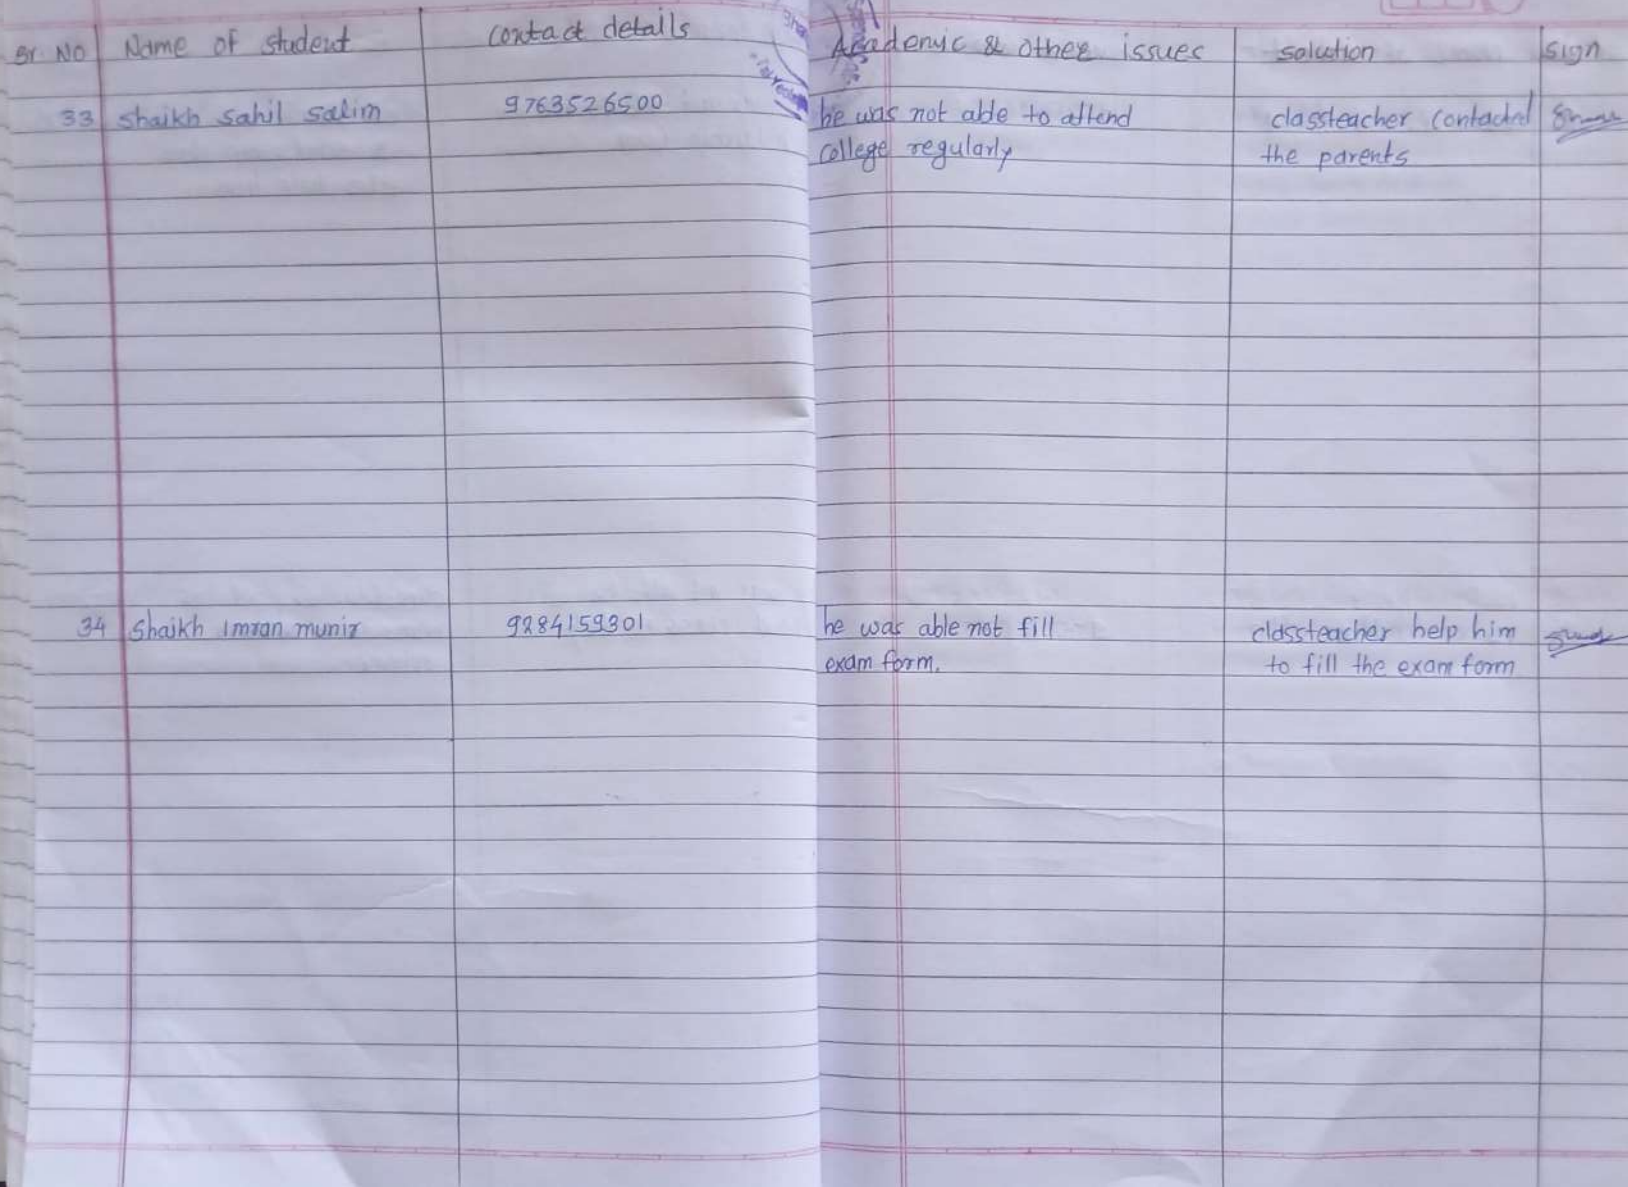 Sr. No Name of student contact details Academic & other issues solution sign
33 Shaikh Sahil Salim 9763526500 he was not able to attend classteacher contacted
college regularly the parents
34 Shaikh Imran munir 9284159301 he was able not fill classteacher help him
exam form. to fill the exam form